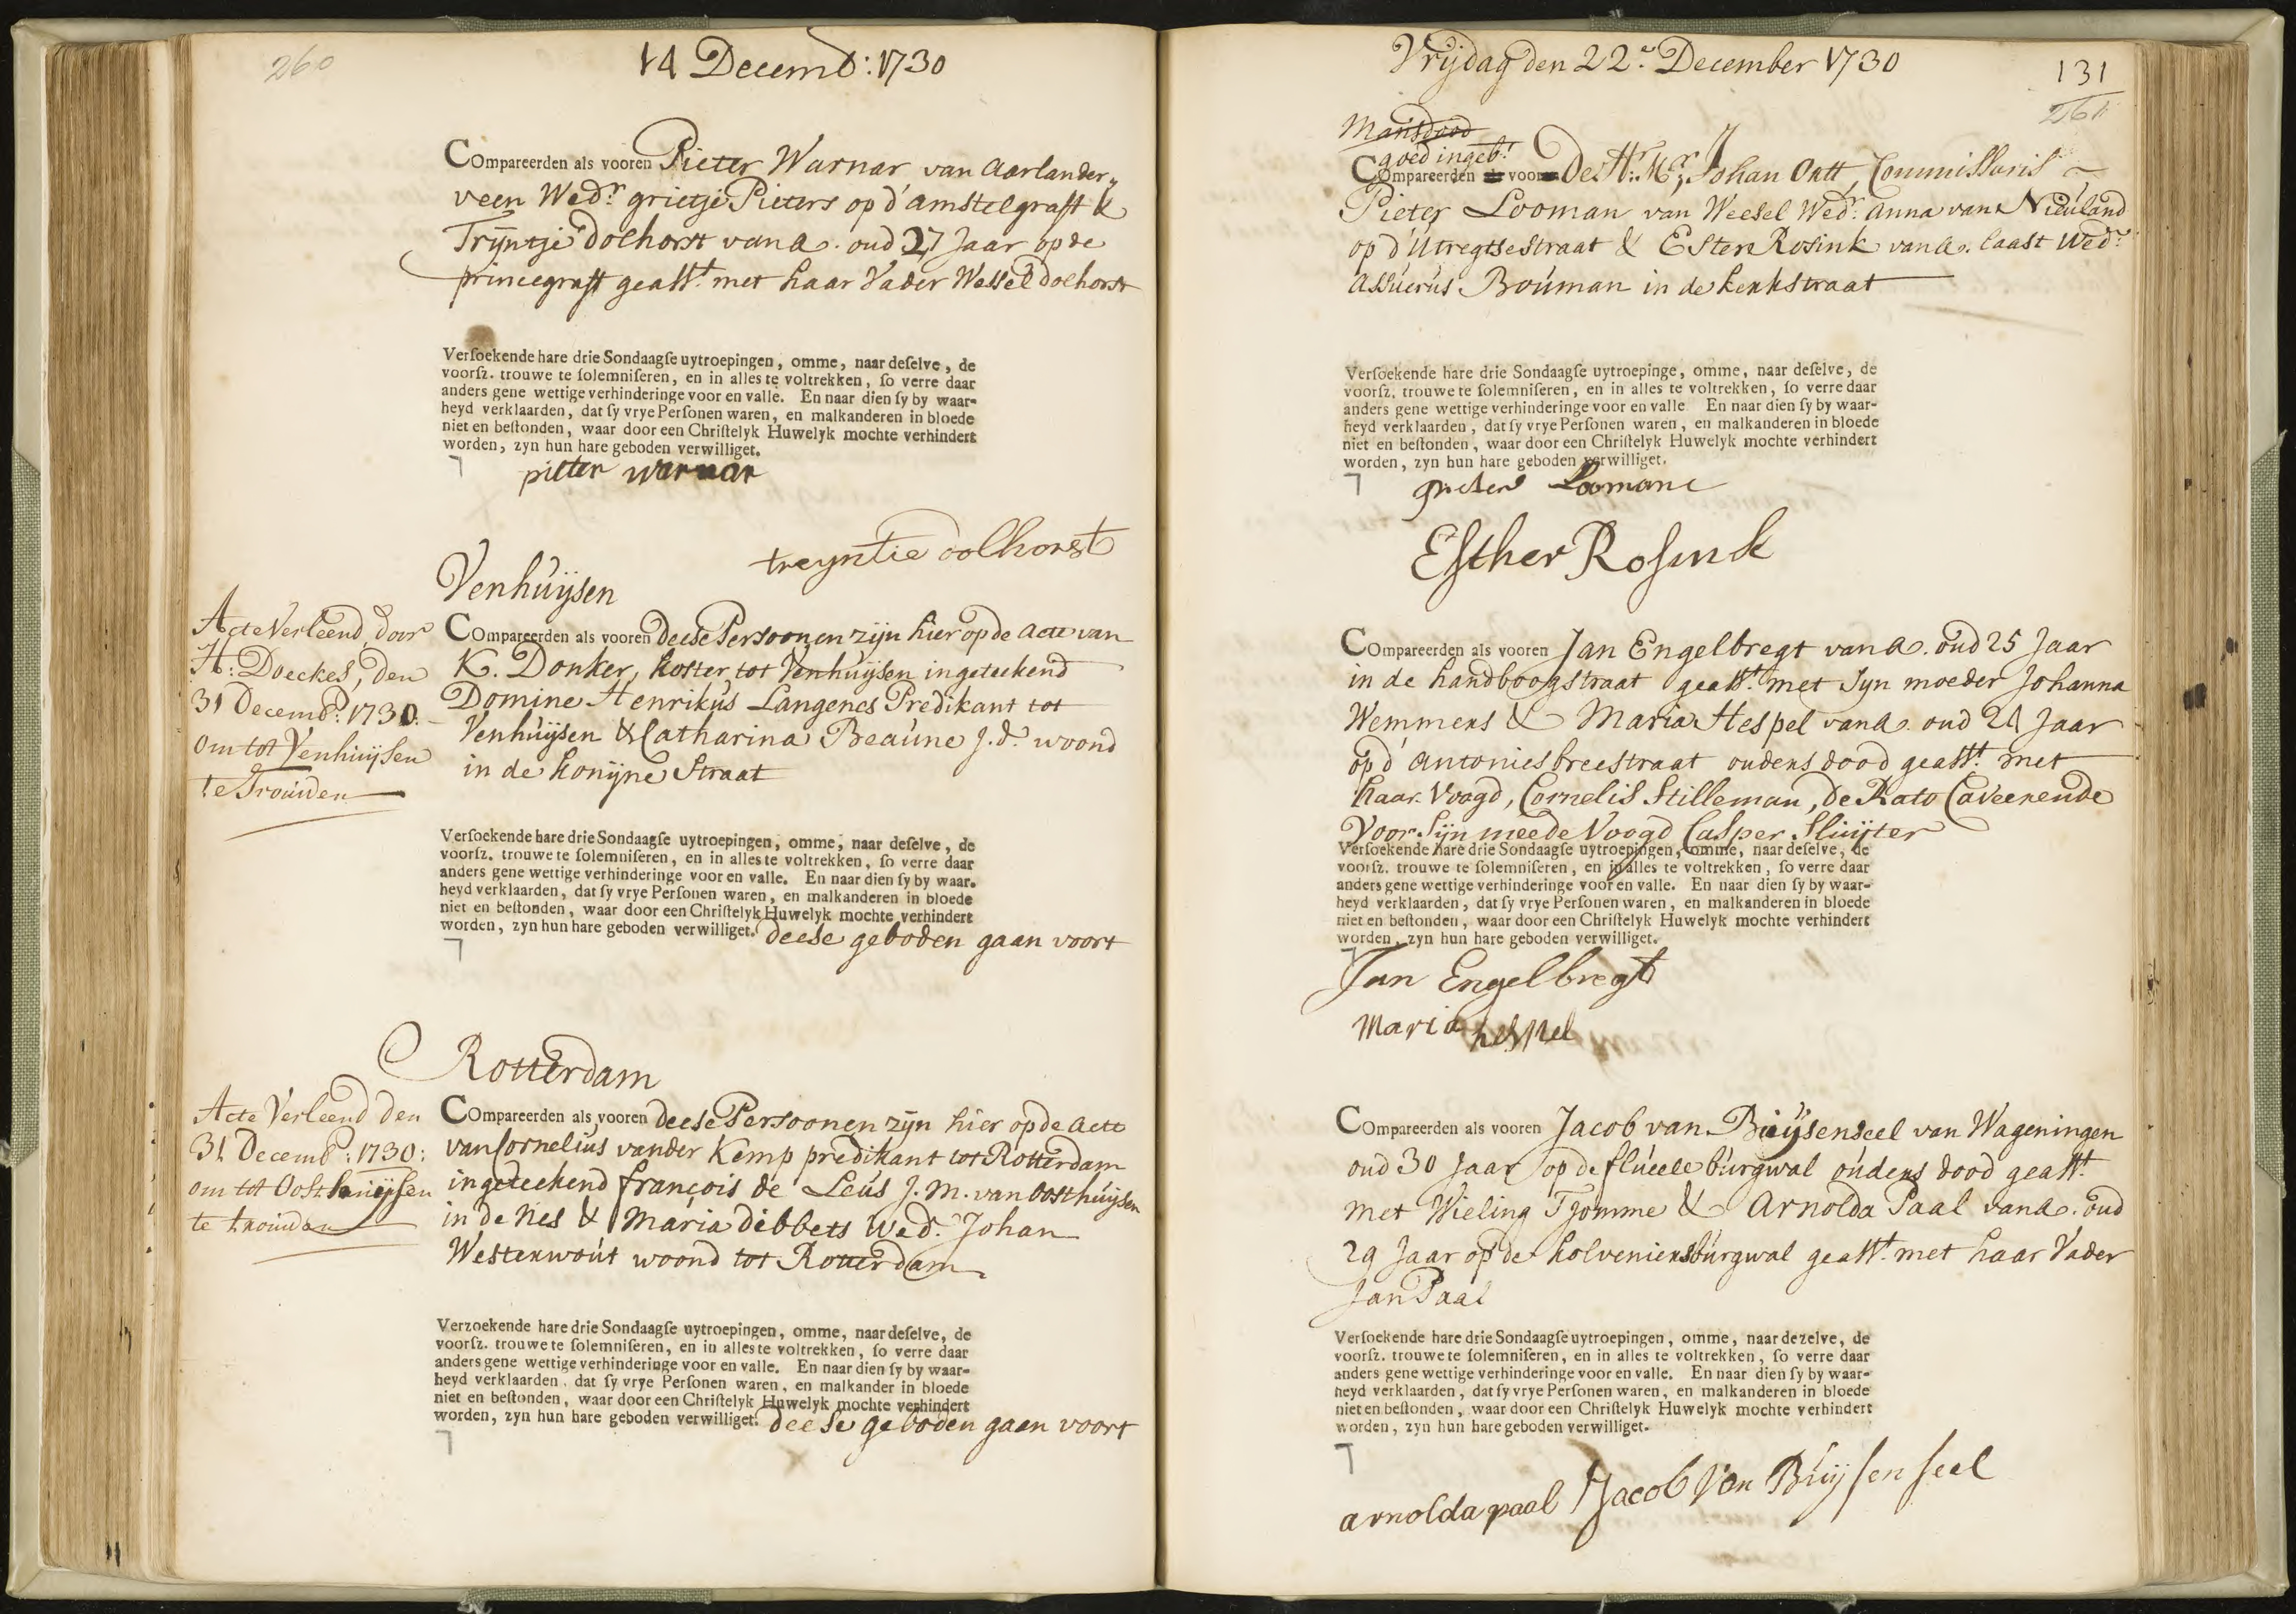 260
14 Decemb: 1730
Compareerden als vooren Pieter Warnar van Aarlander„
veen Wedr. grietje Pieters op d'amstelgraft &
Trÿntje Dolhorst van A. oud 27 Jaar op de
princegraft geasst. met haar Vader Wessel Dolhorst
Versoekende hare drie Sondaagse uytroepingen, omme, naar deselve, de
voorsz. trouwe te solemniseren, en in alles te voltrekken, so verre daar
anders gene wettige verhinderinge voor en valle. En naar dien sy by waar-
heyd verklaarden, dat sy vrye Personen waren, en malkanderen in bloede
niet en bestonden, waar door een Christelyk Huwelyk mochte verhindert
worden, zyn hun hare geboden verwilliget.
pieter warnar
treyntie dolhorst
Venhuÿsen
Acte Verleend door
H: Doeckes, den
31 Decemb: 1730.
om tot Venhuijsen
te Trouwen
Compareerden als vooren deese Persoonen zijn hier op de acte van
K. Donker, koster tot Venhuijsen ingeteekend
Domine Henrikus Langenes Predikant tot
Venhuÿsen & Catharina Beaúne J.d. woond
in de konijne Straat
Versoekende hare drie Sondaagse uytroepingen, omme, naar deselve, de
voorsz. trouwe te solemniseren, en in alles te voltrekken, so verre daar
anders gene wettige verhinderinge voor en valle. En naar dien sy by waar-
heyd verklaarden, dat sy vrye Personen waren, en malkanderen in bloede
niet en bestonden, waar door een Christelyk Huwelyk mochte verhindert
worden, zyn hun hare geboden verwilliget. deese geboden gaan voort
Rotterdam
Acte Verleend den
31 Decemb: 1730:
om tot Oosthuijsen
te trouwen
Compareerden als vooren deese Persoonen zijn hier op de acte
van Cornelius vander Kemp predikant tot Rotterdam
ingeteekend françois de Leús J.M. van Oosthuijsen
in de Nes & Maria dibbets Wed. Johan
Westerwoút woond tot Rotterdam
Verzoekende hare drie Sondaagse uytroepingen, omme, naar deselve, de
voorsz. trouwe te solemniseren, en in alles te voltrekken, so verre daar
anders gene wettige verhinderinge voor en valle. En naar dien sy by waar-
heyd verklaarden, dat sy vrye Personen waren, en malkander in bloede
niet en bestonden, waar door een Christelyk Huwelyk mochte verhindert
worden, zyn hun hare geboden verwilliget. deese geboden gaan voort
Vrijdag den 22e. December 1730
131
261
Mansdood
goed ingeb:
Compareerden voor De Hr: Mr. Johan Ortt, Commissaris
Pieter Looman van Weesel Wedr. anna van Nieuland
op d'Utregtsestraat & Ester Rosink van A. laast Wede.
Assúerús Boúman in de kerkstraat
Versoekende hare drie Sondaagse uytroepinge, omme, naar deselve, de
voorsz. trouwe te solemniseren, en in alles te voltrekken, so verre daar
anders gene wettige verhinderinge voor en valle En naar dien sy by waar-
heyd verklaarden, dat sy vrye Personen waren, en malkanderen in bloede
niet en bestonden, waar door een Christelyk Huwelyk mochte verhindert
worden, zyn hun hare geboden verwilliget.
Pieter Looman
Esther Rosink
Compareerden als vooren Jan Engelbregt van A. oud 25 Jaar
in de handboogstraat geasst. met Syn moeder Johanna
Wemmers & Maria Hespel van A. oud 21 Jaar
op d'Antonies breestraat ouders dood geasst. met
haar Voogd, Cornelis Stilleman, de Rato Caveerende
Voor Sijn meede Voogd Casper Slúijter
Versoekende hare drie Sondaagse uytroepingen, omme, naar deselve, de
voorsz. trouwe te solemniseren, en in alles te voltrekken, so verre daar
anders gene wettige verhinderinge voor en valle. En naar dien sy by waar-
heyd verklaarden, dat sy vrye Personen waren, en malkanderen in bloede
niet en bestonden, waar door een Christelyk Huwelyk mochte verhindert
worden, zyn hun hare geboden verwilliget.
Jan Engelbregt
Maria hespel
Compareerden als vooren Jacob van Búÿsenseel van Wageningen
oud 30 Jaar op de flúeele búrgwal oúders dood geasst.
met Wieling Tjomme & Arnolda Paal van A. oud
29 Jaar op de kolveniersbúrgwal geasst. met haar Vader
Jan Paal
Versoekende hare drie Sondaagse uytroepingen, omme, naar dezelve, de
voorsz. trouwe te solemniseren, en in alles te voltrekken, so verre daar
anders gene wettige verhinderinge voor en valle. En naar dien sy by waar-
heyd verklaarden, dat sy vrye Personen waren, en malkanderen in bloede
niet en bestonden, waar door een Christelyk Huwelyk mochte verhindert
worden, zyn hun hare geboden verwilliget.
Jacob Van Búijsenseel
arnolda paal